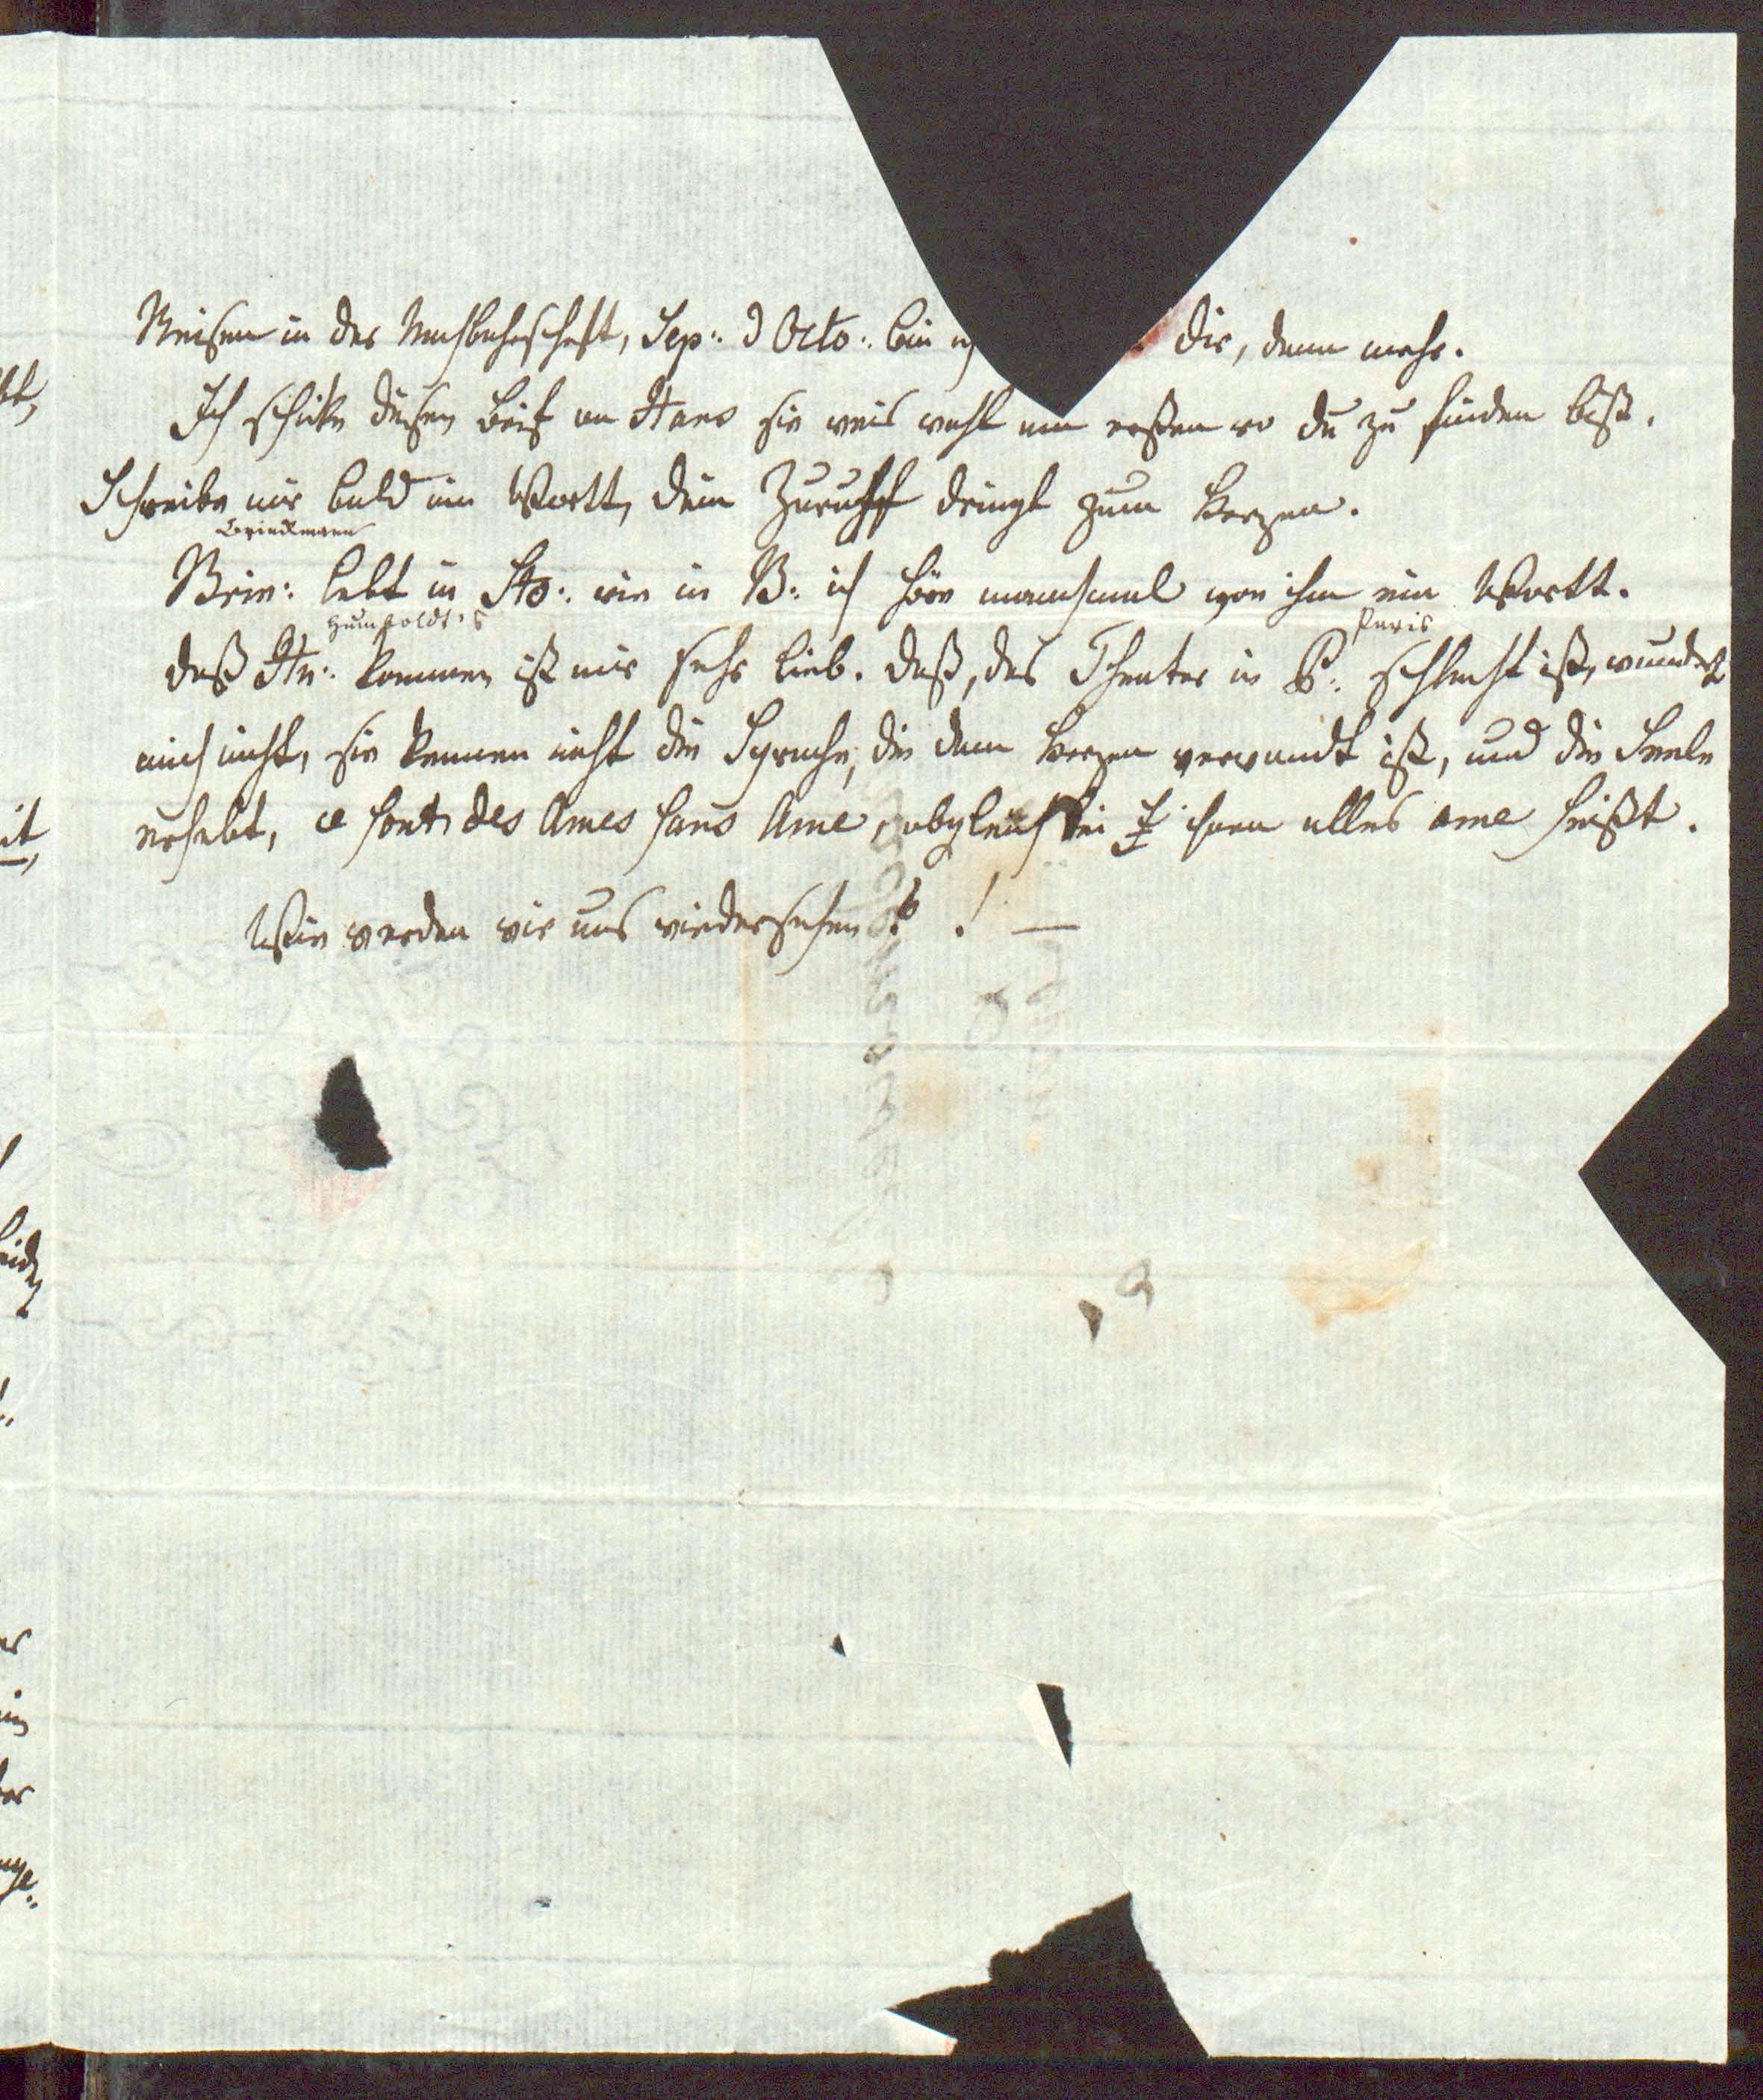 Reisen in der Nachbahrschaft, Sep: d Octo: bin ich dir, dann mehr.
Ich schicke diesen Brif an Hans sie weis wohl am ersten wo du zu finden bist.
Schreibe mir bald ein Wortt, dein Zuruff dringt zum Herzen.
Brinckmann
Brin: lebt in Sto: wie in B: ich höre manchmal von ihm ein Wortt.
Humboldt's Paris
daß Hu: kommen ist mir sehr lieb. daß, das Theater in P: schlecht ist, wundert
mich nicht, sie kennen nicht die Sprache, die dem Herzen verwandt ist, und die Seele
erhebt, ce sont des Ames sans Ame, obgleich bei ihnen alles ame heißt.
Wie werden wir uns wiedersehen? ! —